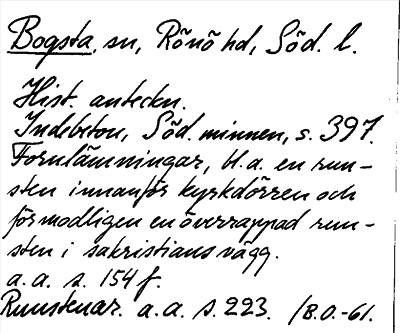 Bogsta, sn, Rönö hd, Söd. l.
Hist. anteckn.
Indebetou, Söd. minnen, s. 397.
Fornlämningar, bl.a. en run-
sten innanför kyrkdörren och
förmodligen en överrappad run-
sten i sakristians vägg.
a.a. s. 154 f.
Runstenar. a.a. s. 223. /B.O.-61.